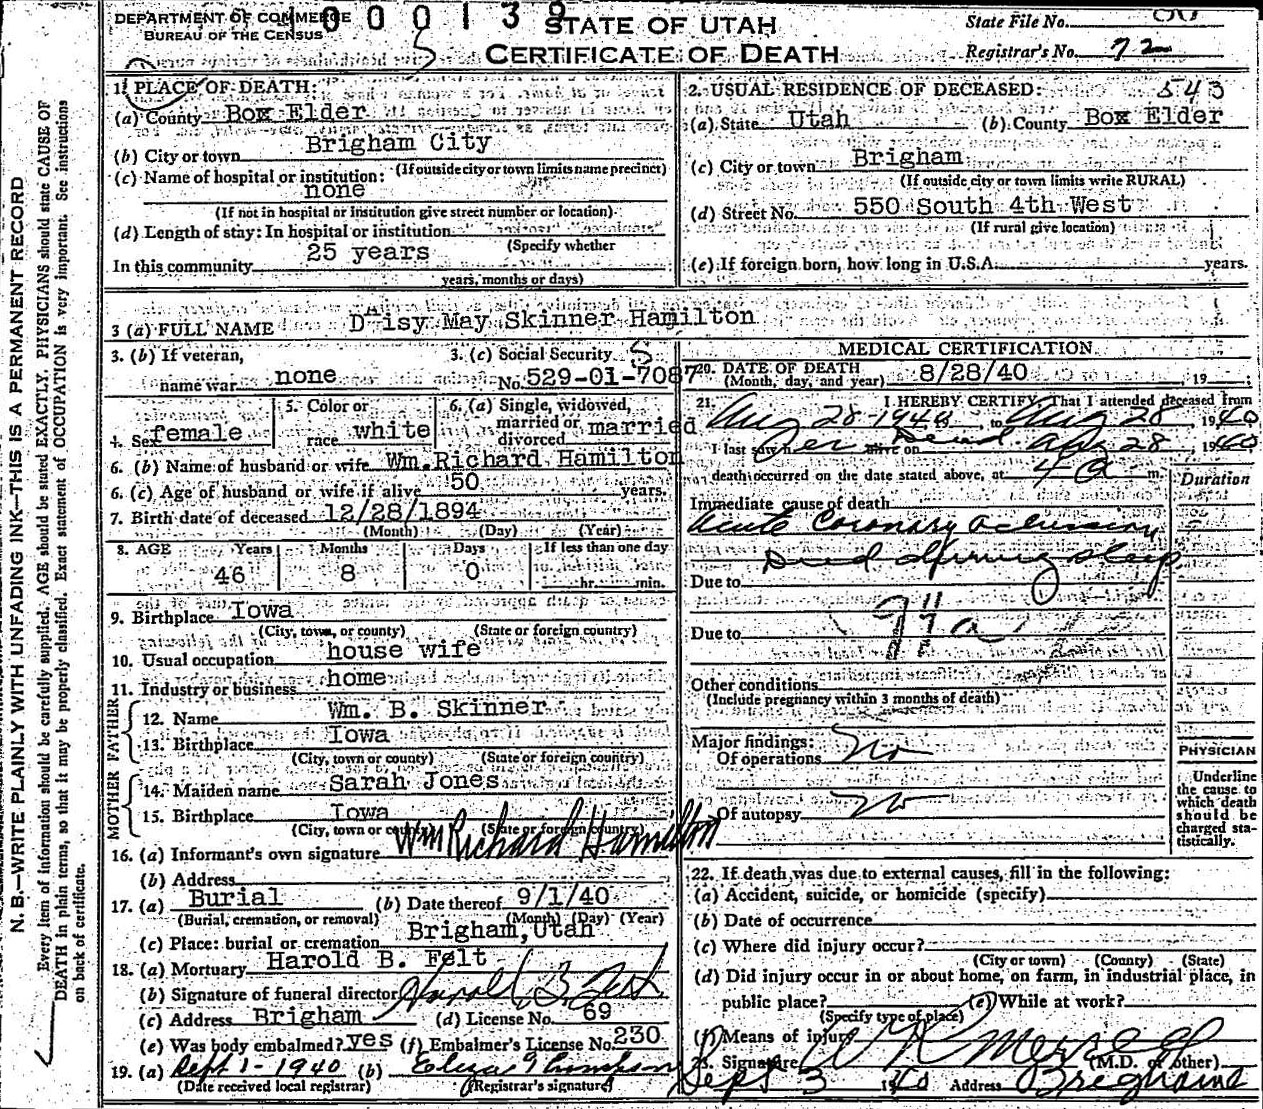 DEPARTMENT OF COMMERCE
BUREAU OF THE CENSUS
STATE OF UTAH
CERTIFICATE OF DEATH
State File No.
Registrar's No. 72
N. B.—WRITE PLAINLY WITH UNFADING INK—THIS IS A PERMANENT RECORD
Every item of information should be carefully supplied. AGE should be stated EXACTLY. PHYSICIANS should state CAUSE OF
DEATH in plain terms, so that it may be properly classified. Exact statement of OCCUPATION is very important. See instructions
on back of certificate.
1. PLACE OF DEATH:
(a) County Box Elder
(b) City or town Brigham City
(If outside city or town limits name precinct)
(c) Name of hospital or institution:
none
(If not in hospital or institution give street number or location)
(d) Length of stay: In hospital or institution
(Specify whether
In this community 25 years
years, months or days)
2. USUAL RESIDENCE OF DECEASED: 543
(a) State Utah (b) County Box Elder
(c) City or town Brigham
(If outside city or town limits write RURAL)
(d) Street No. 550 South 4th West
(If rural give location)
(e) If foreign born, how long in U.S.A. years.
3 (a) FULL NAME DAisy May Skinner Hamilton
3. (b) If veteran,
name war none
3. (c) Social Security
No. 529-01-7087
4. Sex female
5. Color or
race white
6. (a) Single, widowed,
married or
divorced married
6. (b) Name of husband or wife Wm. Richard Hamilton
6. (c) Age of husband or wife if alive 50 years.
7. Birth date of deceased 12/28/1894
(Month) (Day) (Year)
8. AGE Years Months Days If less than one day
46 8 0 hr. min.
9. Birthplace Iowa
(City, town, or county) (State or foreign country)
10. Usual occupation house wife
11. Industry or business home
FATHER
12. Name Wm. B. Skinner
13. Birthplace Iowa
(City, town or county) (State or foreign country)
MOTHER
14. Maiden name Sarah Jones
15. Birthplace Iowa
(City, town or county) (State or foreign country)
16. (a) Informant's own signature Wm Richard Hamilton
(b) Address
17. (a) Burial (b) Date thereof 9/1/40
(Burial, cremation, or removal) (Month) (Day) (Year)
(c) Place: burial or cremation Brigham, Utah
18. (a) Mortuary Harold B. Felt
(b) Signature of funeral director Harold B. Felt
(c) Address Brigham (d) License No. 69
(e) Was body embalmed? yes (f) Embalmer's License No. 230
19. (a) Sept 1-1940 (b) Thompson
(Date received local registrar) (Registrar's signature)
MEDICAL CERTIFICATION
20. DATE OF DEATH
(Month, day, and year) 8/28/40, 19 ;
21. I HEREBY CERTIFY, That I attended deceased from
Aug 28-1940, to Aug 28 1940
I last saw her Dead alive on Aug 28, 1940
death occurred on the date stated above, at 4 a m.
Duration
Immediate cause of death
Acute Coronary occlusion
Died during sleep
Due to
Due to 94a
Other conditions
(Include pregnancy within 3 months of death)
Major findings:
Of operations no
Of autopsy no
PHYSICIAN
Underline
the cause to
which death
should be
charged sta-
tistically.
22. If death was due to external causes, fill in the following:
(a) Accident, suicide, or homicide (specify)
(b) Date of occurrence
(c) Where did injury occur?
(City or town) (County) (State)
(d) Did injury occur in or about home, on farm, in industrial place, in
public place? (e) While at work?
(Specify type of place)
(f) Means of injury
23. Signature (M.D. or other)
Sept 3 1940 Address Brigham